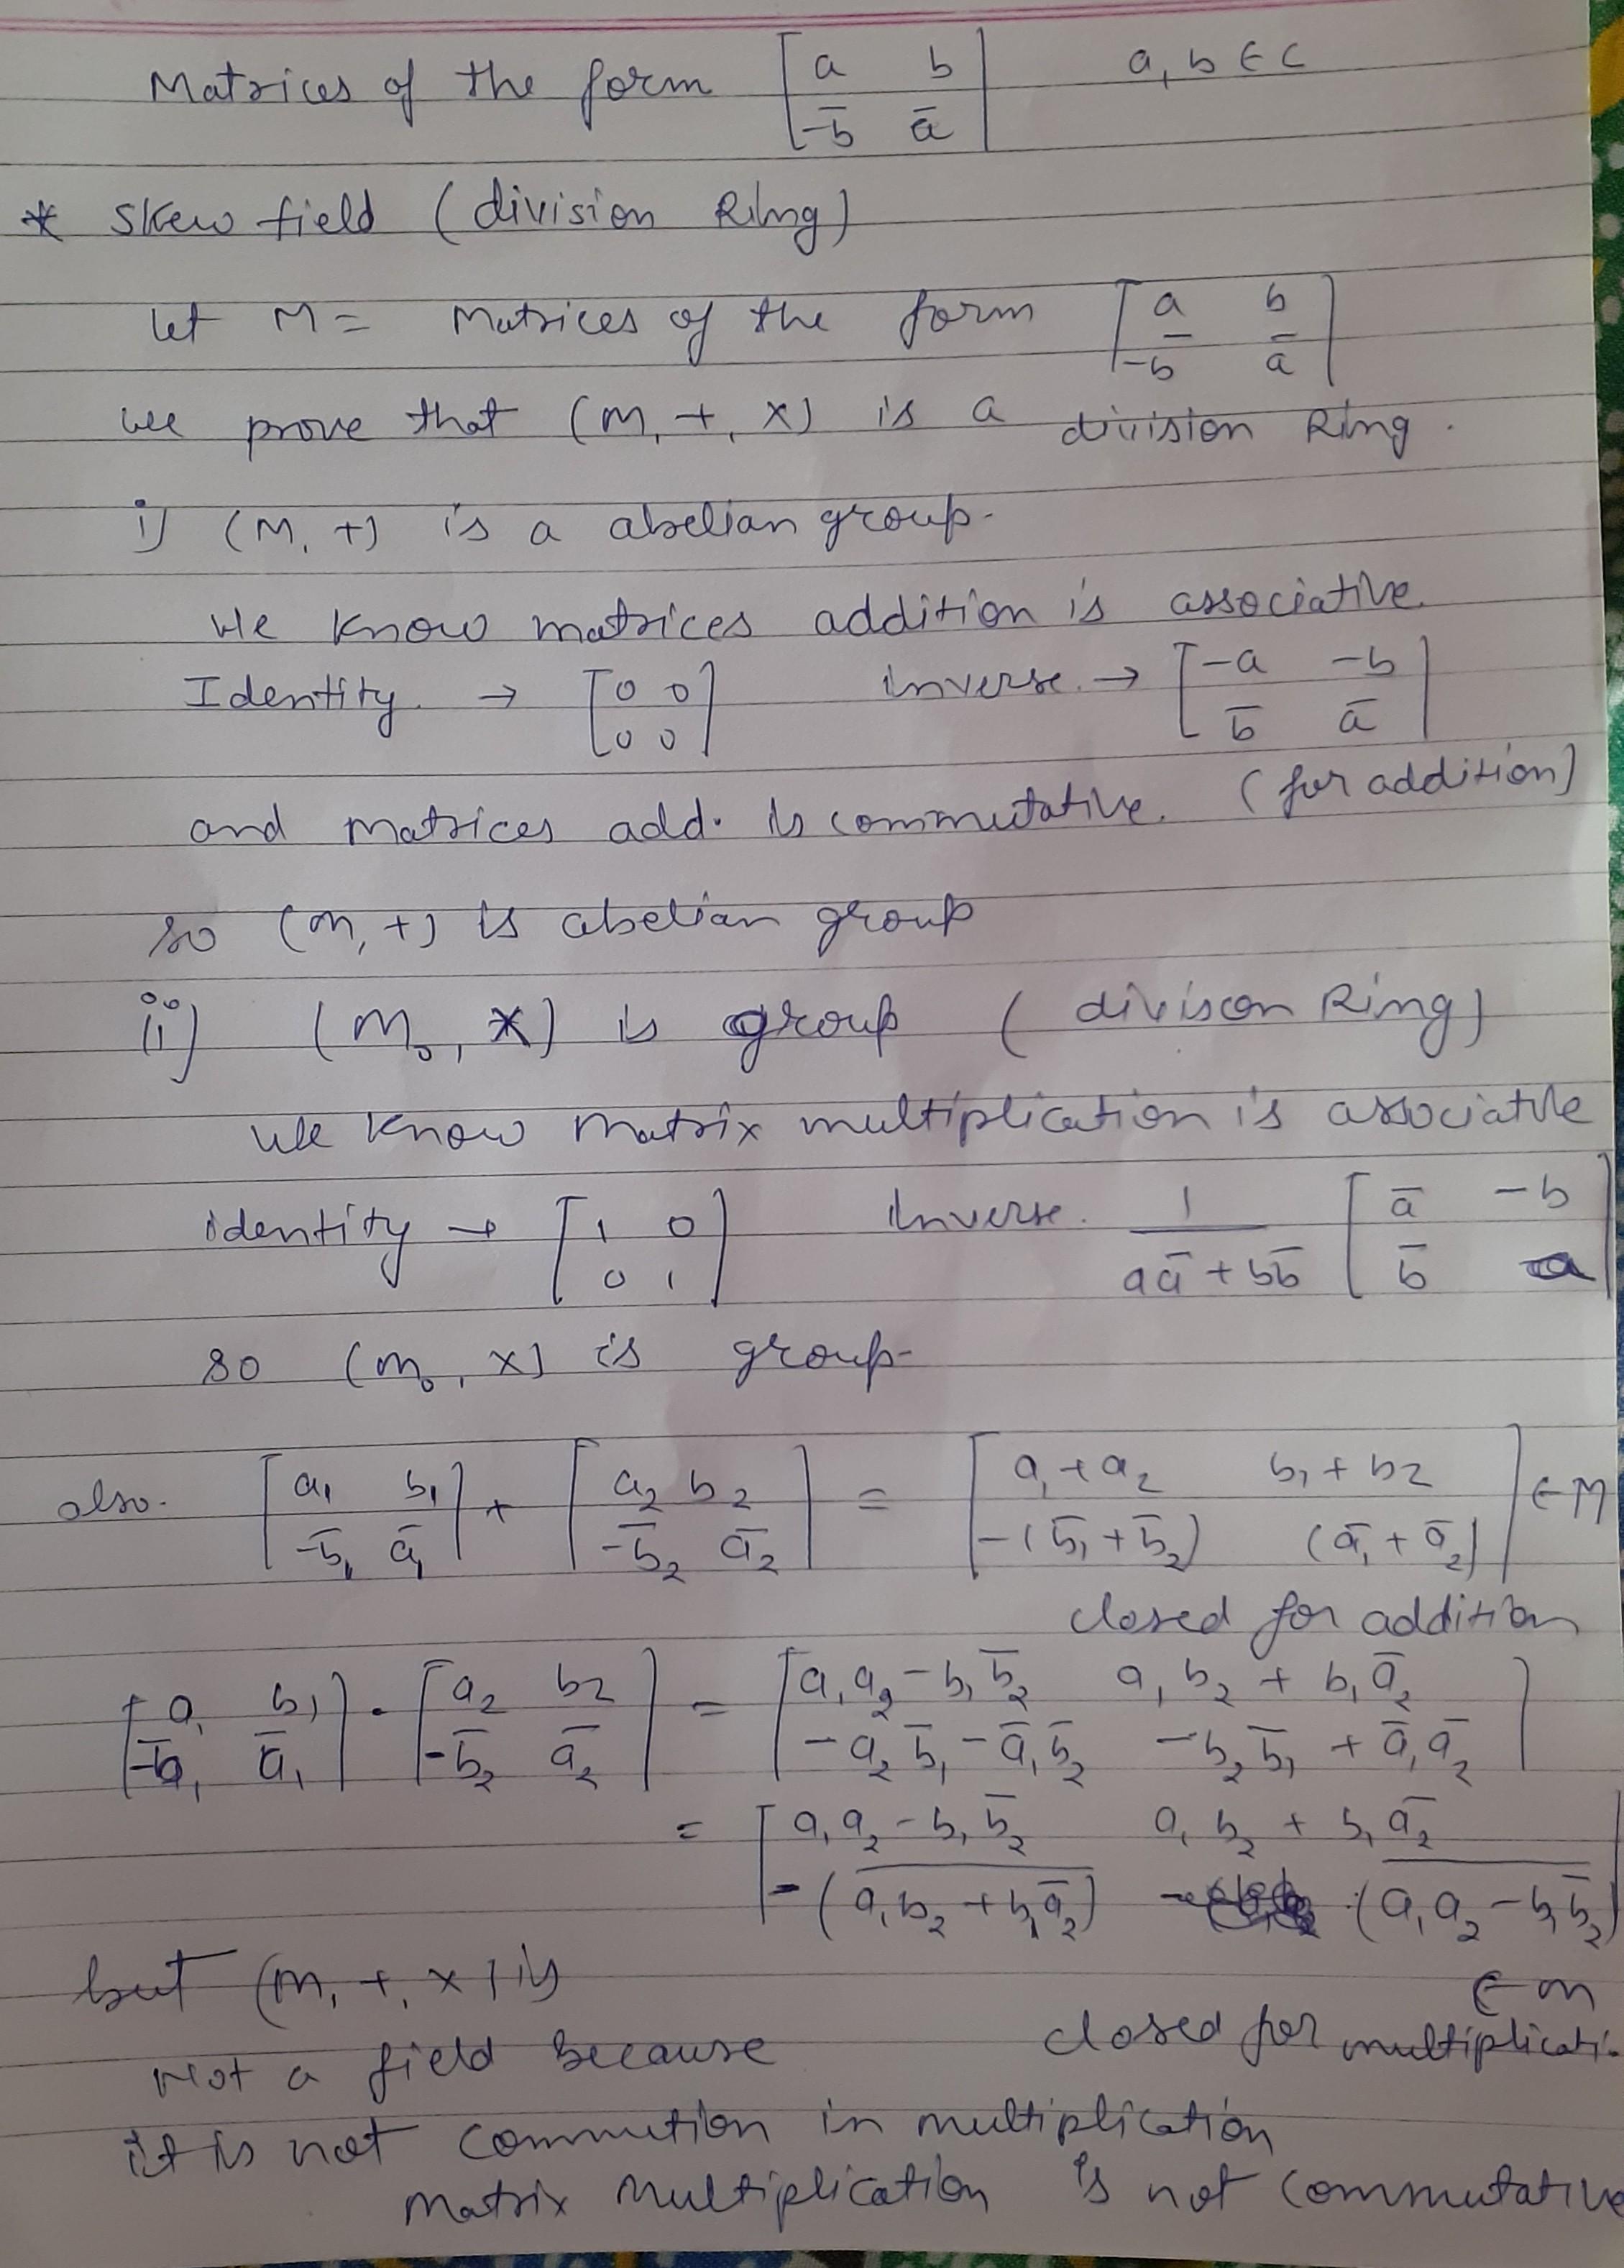 Matrices of the form [a b; -b̄ ā] a, b ∈ C
* Skew field (division Ring)
let M = Matrices of the form [a b; -b̄ ā]
we prove that (M, +, x) is a division Ring.
i) (M, +) is a abelian group.
we know matrices addition is associative.
Identity. → [0 0; 0 0] inverse. → [-a -b; b̄ ā]
and matrices add. is commutative. (for addition)
so (M, +) is abelian group
ii) (M₀, x) is group (divison Ring)
we know matrix multiplication is associative
identity → [1 0; 0 1] Inverse. 1/(aā + bb̄) [ā -b; b̄ a]
so (M₀, x) is group-
also. [a₁ b₁; -b̄₁ ā₁] + [a₂ b₂; -b̄₂ ā₂] = [a₁+a₂ b₁+b₂; -(b̄₁+b̄₂) (ā₁+ā₂)] ∈ M
closed for addition
[a₁ b₁; -b̄₁ ā₁] · [a₂ b₂; -b̄₂ ā₂] = [a₁a₂ - b₁b̄₂ a₁b₂ + b₁ā₂; -a₂b̄₁ - ā₁b̄₂ -b₂b̄₁ + ā₁ā₂]
= [a₁a₂ - b₁b̄₂ a₁b₂ + b₁ā₂; -(a₁b₂ + b₁ā₂)‾ (a₁a₂ - b₁b̄₂)‾]
∈ M
but (M, +, x) is
closed for multiplicati.
Not a field because
it is not commution in multiplication
matrix multiplication is not commutative